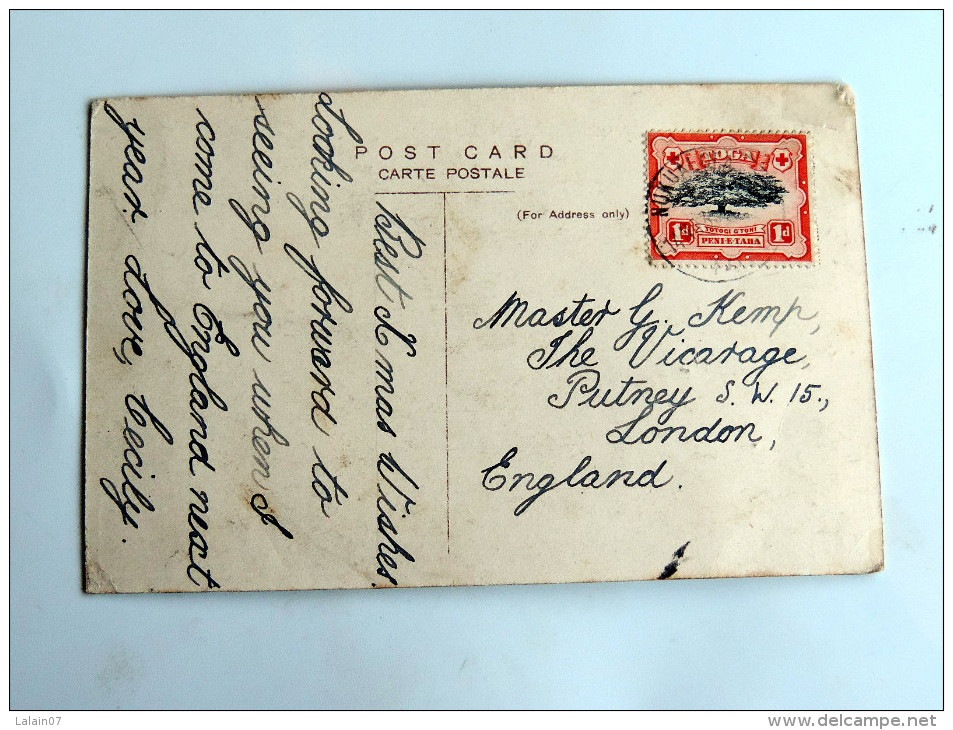 POST CARD
CARTE POSTALE
(For Address only)
TOGA
1d
1d
TOTOGI G'TONI
PENI-E-TAHA
NUKU
Best X'mas Wishes.
Looking forward to
seeing you when I
come to England next
year. Love, Cecily.
Master G. Kemp,
The Vicarage,
Putney S. W. 15.,
London,
England.
Lalain07
http://www.delcampe.net